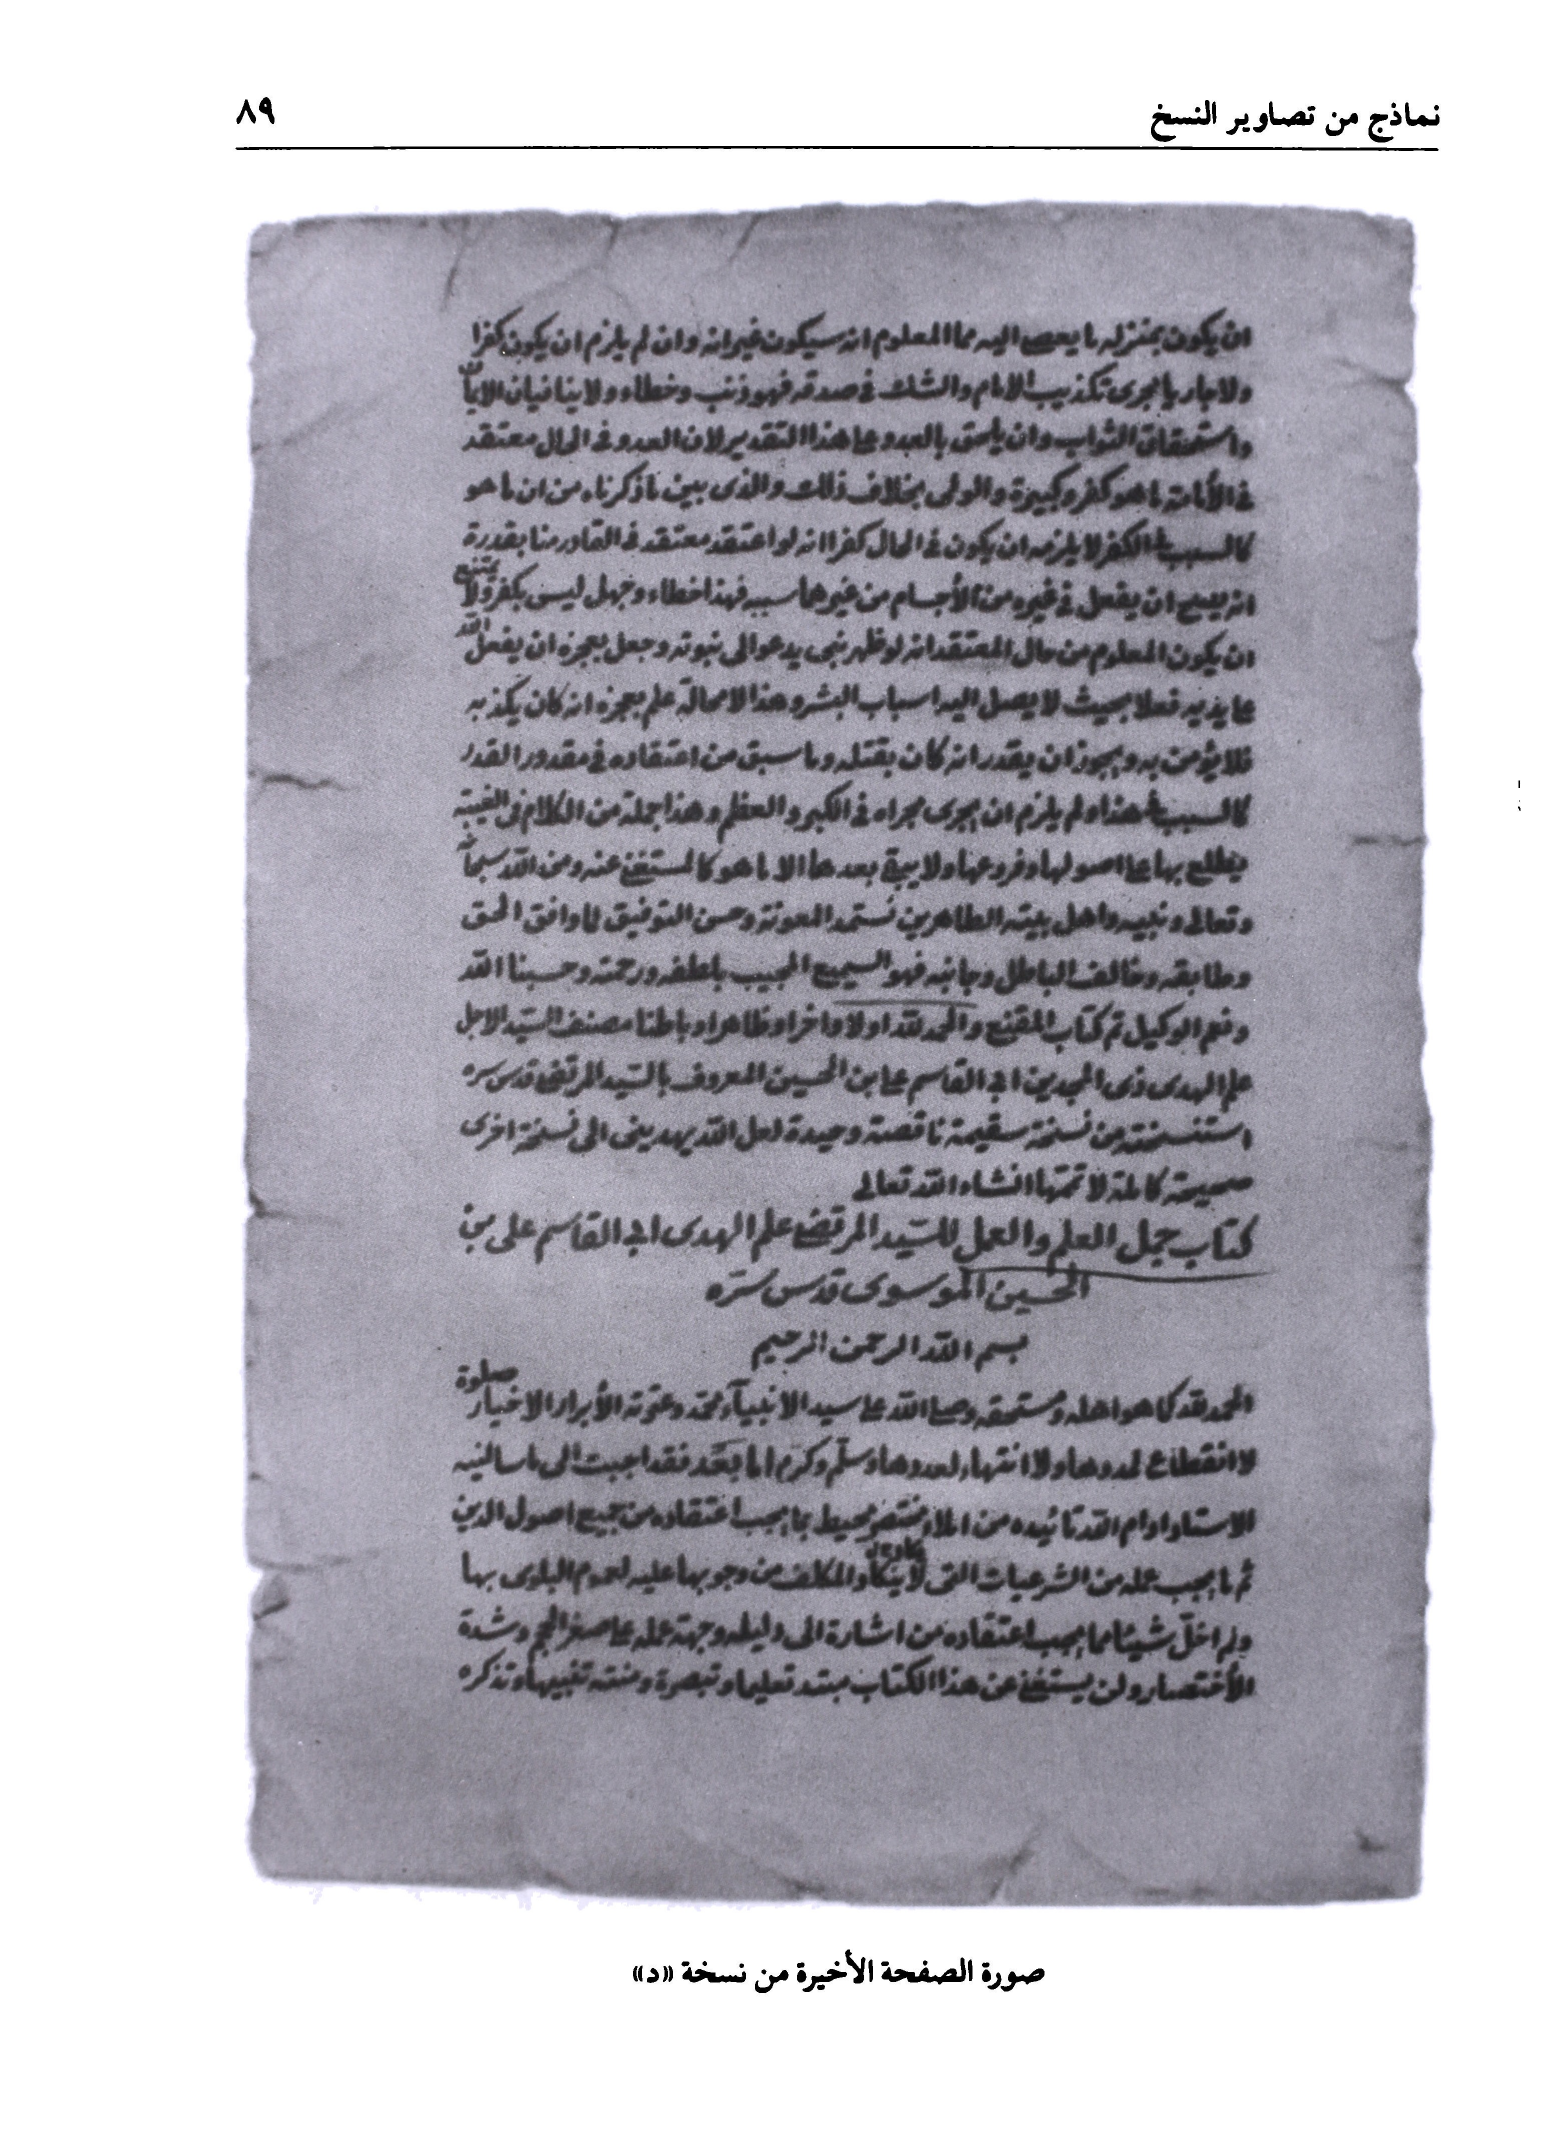 نماذج من تصاوير النسخ
٨٩
ان يكون بمنزله ما يعصى اليه مما المعلوم انه سيكون غير انه وان لم يلزم ان يكون كفرا
ولا جاريا مجرى تكذيب الامام والشك فى صدقه فهو ذنب وخطاء ولا ينافيان الايمان
واستحقاق الثواب وان يلحق بالعدو على هذا التقدير لان العدو فى الحال معتقد
فى الأمامة ما هو كفر وكبيرة والولى بخلاف ذلك والذى يبين ما ذكرناه من ان ما هو
كالسبب فى الكفر لا يلزمه ان يكون فى الحال كفرا انه لو اعتقد معتقد فى القادر منا بقدرة
انه يصح ان يفعل فى غيره من الأجسام من غير مماسه فهذا خطاء وجهل ليس بكفر ولا يمتنع
ان يكون المعلوم من حال المعتقد انه لو ظهر نبى يدعو الى نبوته وجعل معجزه ان يفعل الله
على يديه فعلا بحيث لا يصل اليه اسباب البشر وهذا لا محالة علم معجزه انه كان يكذبه
فلا يؤمن به ويجوز ان يقدر انه كان يقتله وما سبق من اعتقاده فى مقدور القدر
كالسبب فى هذا ولم يلزم ان يجرى مجراه فى الكبر والعظم وهذا جملة من الكلام فى الغيبة
يطلع بها على اصولها وفروعها ولا يبقى بعدها الا ما هو كالمستغنى عنه ومن الله سبحانه
وتعالى ونبيه واهل بيته الطاهرين نستمد المعونة وحسن التوفيق لما وافق الحق
وطابقه وخالف الباطل وجانبه فهو السميع المجيب بلطفه ورحمته وحسبنا الله
ونعم الوكيل تم كتاب المقنع والحمد لله اولا واخرا وظاهرا وباطنا مصنف السيد الاجل
علم الهدى ذى المجدين ابى القاسم على بن الحسين المعروف بالسيد المرتضى قدس سره
استنسخته من نسخة سقيمة ناقصة وحيدة لعل الله يهدينى الى نسخة اخرى
صحيحة كاملة لاتمتها انشاء الله تعالى
كتاب جمل العلم والعمل للسيد المرتضى علم الهدى ابى القاسم على بن
الحسين الموسوى قدس سره
بسم الله الرحمن الرحيم
الحمد لله كما هو اهله ومستحقه وصلى الله على سيد الأنبياء محمد وعترته الأبرار الاخيار صلوة
لا انقطاع لمددها ولا انتهاء لعددها وسلم وكرم اما بعد فقد اجبت الى ما سالنيه
الاستاد ادام الله تائيده من املاء مختصر محيط بما يجب اعتقاده من جميع اصول الدين
ثم ما يجب عمله من الشرعيات التى لا ينكاد المكلف من وجوبها عليه لعموم البلوى بها
ولم اخل شيئا مما يجب اعتقاده من اشارة الى دليله وجهة عمله على صغر الحجم وشدة
الأختصار ولن يستغنى عن هذا الكتاب مبتد تعليما وتبصرة ومنته تنبيها وتذكره
صورة الصفحة الأخيرة من نسخة «د»